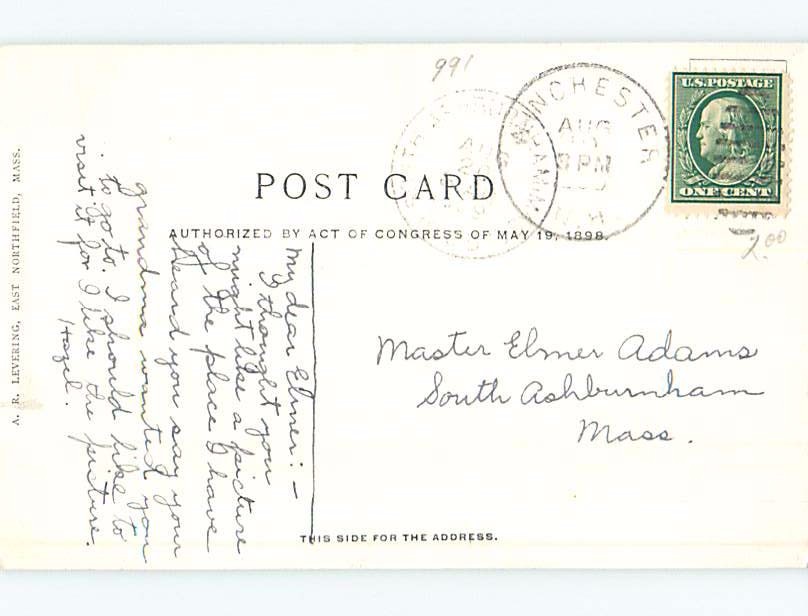 991
WINCHESTER
AUG
8 PM
U.S. POSTAGE
ONE CENT
2.00
POST CARD
AUTHORIZED BY ACT OF CONGRESS OF MAY 19, 1898.
A. R. LEVERING, EAST NORTHFIELD, MASS.
My dear Elmer:-
I thought you
might like a picture
of the place I have
heard you say your
grandma wanted you
to go to. I should like to
visit it for I like the picture.
Hazel.
Master Elmer Adams
South Ashburnham
Mass.
THIS SIDE FOR THE ADDRESS.